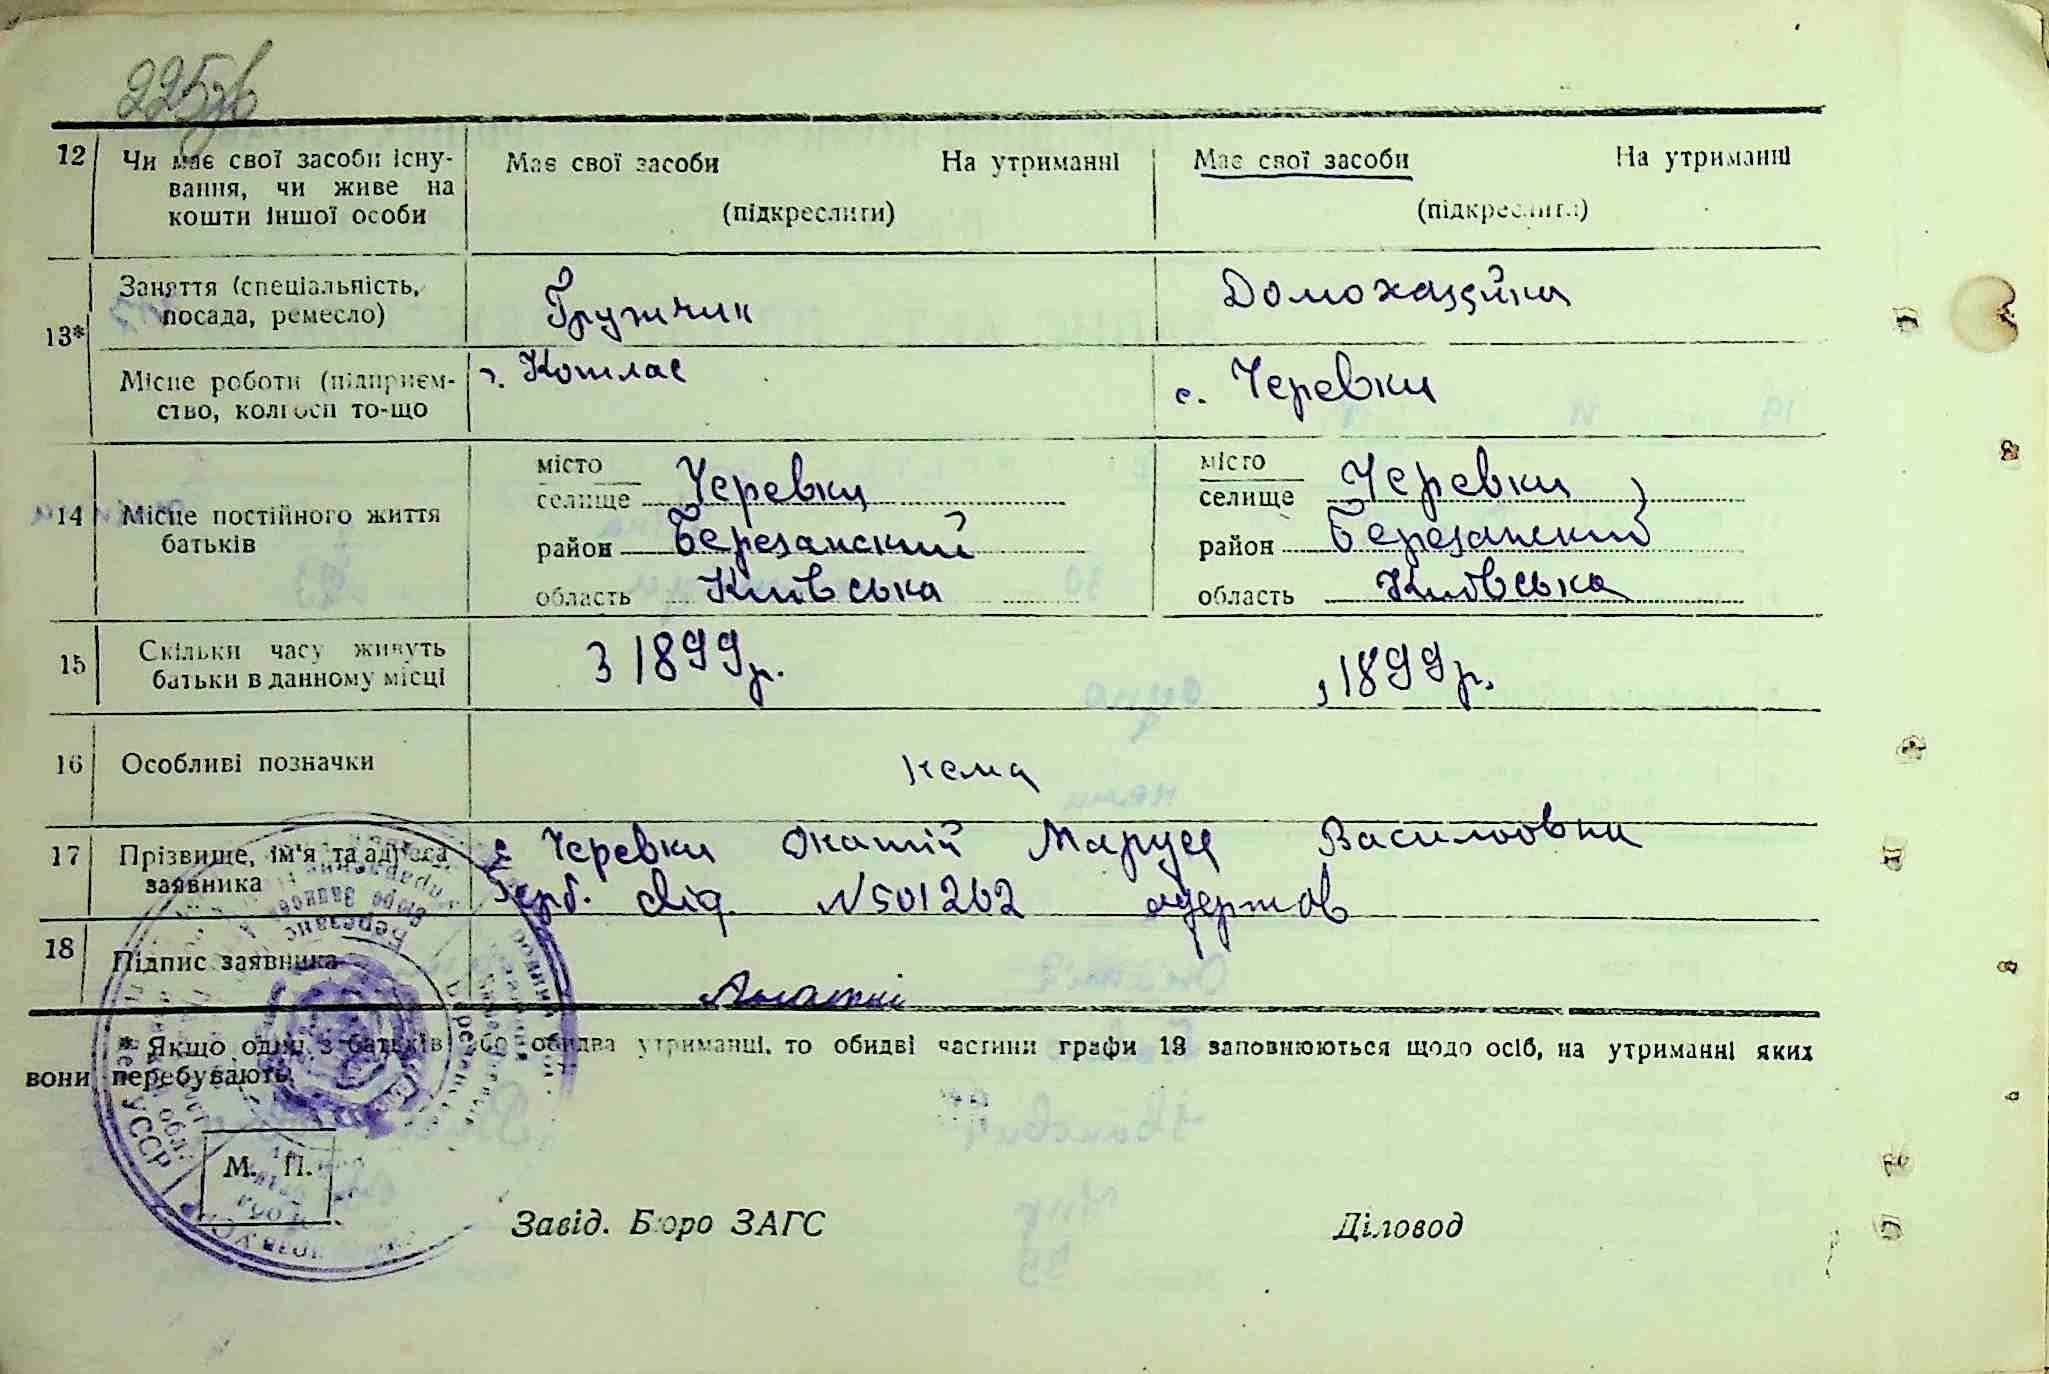 225зв
12 Чи має свої засоби існу- Має свої засоби На утриманні Має свої засоби На утриманні
вання, чи живе на
кошти іншої особи (підкреслити) (підкреслити)
13* Заняття (спеціальність, Грузчик Домохазяйка
посада, ремесло)
Місце роботи (підприєм- г. Котлас с. Черевки
ство, колгосп то-що
14 Місце постійного життя місто Черевки місто Черевки
батьків селище селище
район Березанский район Березанский
область Київська область Київська
15 Скільки часу живуть З 1899р. з 1899р.
батьки в данному місці
16 Особливі позначки нема
17 Прізвище, ім'я та адреса с Черевки Окатій Маруся Василовна
заявника Герб. свід. №501262 одержав
18 Підпис заявника
* Якщо один з батьків або обидва утриманці, то обидві частини графи 13 заповнюються щодо осіб, на утриманні яких
вони перебувають.
М. П.
Завід. Бюро ЗАГС Діловод